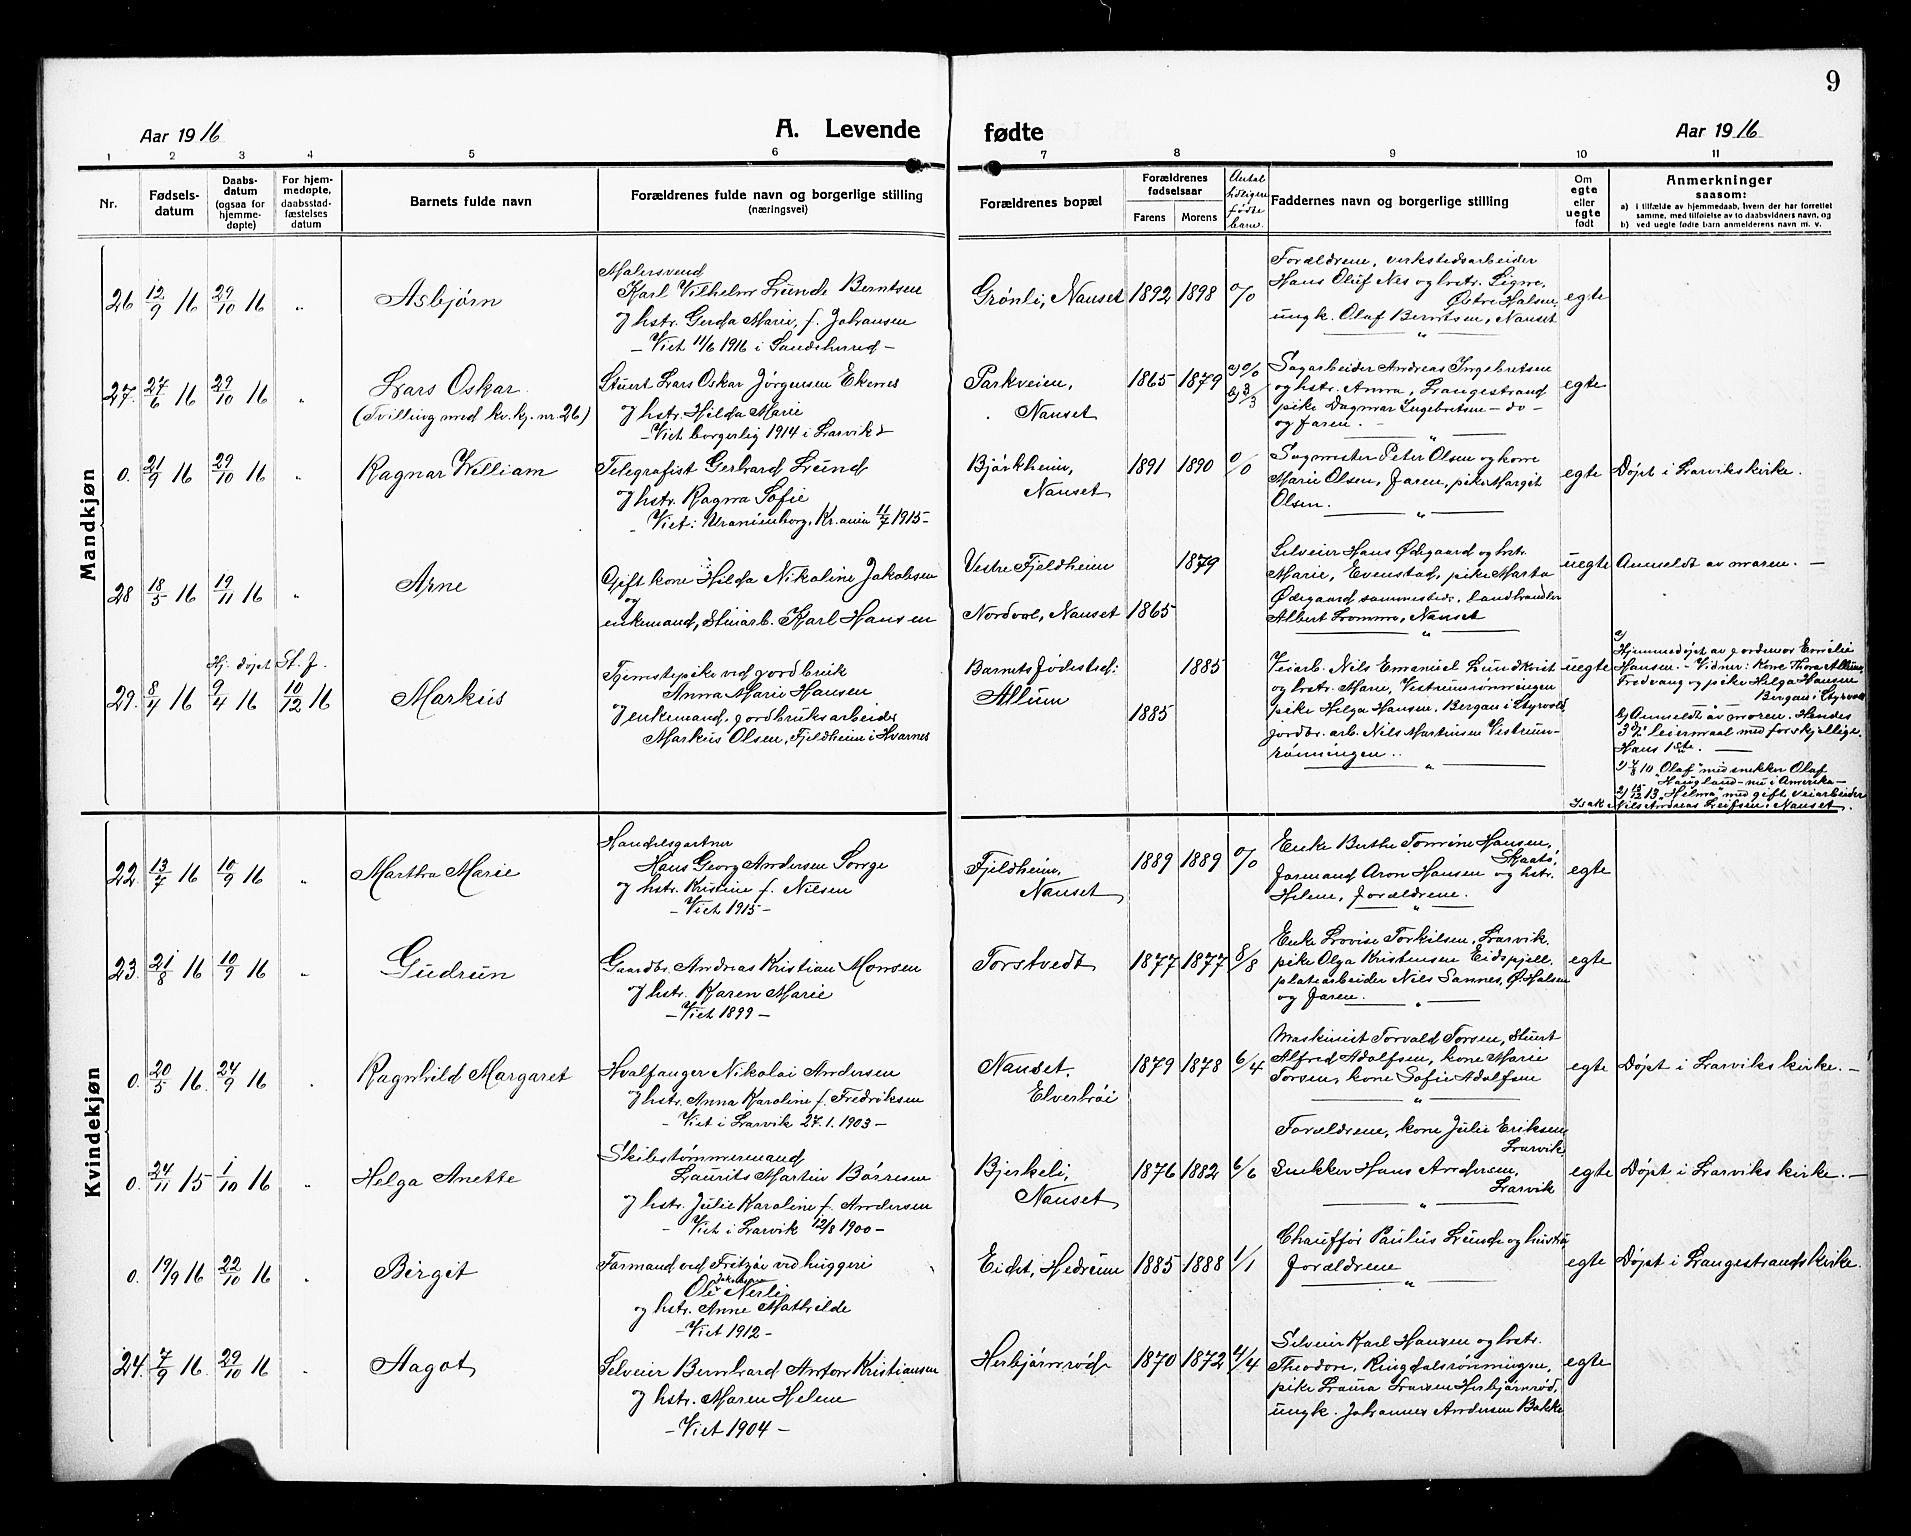 9
Aar 1916
A. Levende
fødte
Aar 1916
1 2 3 4 5 6 7 8 9 10 11
Nr.
Fødsels-
datum
Daabs-
datum
(ogsaa for
hjemme-
døpte)
For hjem-
medøpte,
daabsstad-
fæstelses
datum
Barnets fulde navn
Forældrenes fulde navn og borgerlige stilling
(næringsvei)
Forældrenes bopæl
Forældrenes
fødselsaar
Farens Morens
Antal
tidligere
fødte
barn.
Faddernes navn og borgerlige stilling
Om
egte
eller
uegte
født
Anmerkninger
saasom:
a) i tilfælde av hjemmedaab, hvem der har forrettet
samme, med tilføielse av to daabsvidners navn, og
b) ved uegte fødte barn anmelderens navn m. v.
Mandkjøn
26 12/9 16 29/10 16 " Asbjørn
Malersvend
Karl Vilhelm Lunde Berntsen
og hstr. Gerda Marie, f. Johansen
- Viet 11/6 1916 i Sandeherred -
Grønli, Nanset 1892 1898 0/0
Forældrene, verkstedsarbeider
Hans Oluf Nes og hstr. Signe,
Østre Halsen,
ungk. Olaf Berntsen, Nanset
egte
27. 27/6 16 29/10 16 " Lars Oskar
(Tvilling med kv. kj. nr. 26)
Stuert Lars Oskar Jørgensen Ekenes
og hstr. Hilda Marie
- Viet borgerlig 1914 i Larvik -
Parkveien,
Nanset
1865 1879 a) 0/0
b) 3/3
Sagarbeider Andreas Ingebretsen
og hstr. Anna, Langestrand
pike Dagmar Ingebretsen - do -
og faren. -
egte
0. 21/9 16 29/10 16 " Ragnar William
Telegrafist Gerhard Lund
og hstr. Ragna Sofie
- Viet: Uranienborg, Kr.ania 11/7 1915 -
Bjørkheim,
Nanset
1891 1890 0/0
Sagmester Peter Olsen og kone
Marie Olsen, faren, pike Margit
Olsen.
egte Døpt i Larviks kirke.
28 18/5 16 19/11 16 " Arne
Gift kone Hilda Nikoline Jakobsen
og
enkemand, Stuiarb. Karl Hansen
Vestre Fjeldheim 1879
Nordvol, Nanset 1865
Selveier Hans Ødegaard og hstr.
Marie, Evenstad, pike Marta
Ødegaard sammesteds, landhandler
Albert Lomme, Nanset
uegte Anmeldt av moren. -
29. 8/4 16 Hj. døpt 9/4 16 St. f. 10/12 16 Markus
Tjenestepike ved jordbruk
Anna Marie Hansen
og enkemand, jordbruksarbeider
Markus Olsen, Fjeldheim i Hvarnes
Barnets fødested:
Allum
1885
1885
Veiarb. Nils Emanuel Lundkvist
og hstr. Marie, Vestrumrønningen
pike Helga Hansen, Bergan i Styrvold
jordbr. arb. Nils Martinsen Vestrum-
rønningen.
uegte
a)
Hjemmedøpt av jordemor Emilie
Hansen. - Vidner: Kone Thora Allum,
Fredvang og pike Helga Hansen
Bergan i Styrvold
b) Anmeldt av moren. Hendes
3die leiermaal med forskjellige.
Hans 1ste. -
1) 7/8 10 "Olaf" med snekker Olaf
Haugland - nu i Amerika -
2) 15/12 13 "Helma" med gift veiarbeider
Isak Nils Andreas Leifsen, Nanset.
Kvindekjøn
22. 13/7 16 10/9 16 " Martha Marie
Handelsgartner
Hans Georg Andersen Sorge
og hstr. Kristine f. Nilsen
- Viet 1915 -
Fjeldheim,
Nanset
1889 1889 0/0
Enke Berthe Tomine Hansen,
Skaatø,
formand Aron Hansen og hstr.
Helene, forældrene.
egte
23. 21/8 16 10/9 16 " Gudrun
Gaardbr. Andreas Kristian Monsen
og hstr. Karen Marie
- Viet 1899 -
Torstvedt 1877 1877 8/8
Enke Lovise Torkilsen, Larvik.
pike Olga Kristensen Eidsfjell
platearbeider Nils Sannes, Ø. Halsen
og faren.
egte
0. 20/5 16. 24/9 16 Ragnhild Margaret
Hvalfanger Nikolai Andersen
og hstr. Anna Karoline f. Fredriksen
- Viet i Larvik 27.1.1903 -
Nanset.
Elverhøi
1879 1878 6/4
Maskinist Torvald Torsen, Stuert
Alfred Adolfsen, kone Marie
Torsen, kone Sofie Adolfsen
egte Døpt i Larviks kirke. -
0. 24/11 15 1/10 16 " Helga Anette
Skibstømmermand
Laurits Martin Børresen
og hstr. Julie Karoline f. Andersen
- Viet i Larvik 12/8 1900 -
Bjerkeli,
Nanset
1876 1882 6/6
Forældrene, kone Julie Eriksen,
Larvik,
Snekker Hans Andersen,
Larvik
egte Døpt i Larviks kirke. -
0. 19/9 16 22/10 16 Birgit
Formand ved Fritzøe vedhuggeri
Ole Jakobsen Nerli
og hstr. Anne Mathilde
- Viet 1912 -
Eidet, Hedrum 1885 1888 1/1
Chauffør Paulus Lunde og hustru,
forældrene
egte Døpt i Langestrands kirke.
24. 7/9 16 29/10 16 Aagot
Selveier Bernhard Anton Kristiansen
og hstr. Maren Helene
- Viet 1904 -
Herbjørnrød 1870 1872 4/4
Selveier Karl Hansen og hstr.
Theodore, Ringdalsrønningen,
pike Laura Larsen Herbjørnrød,
ungk. Johannes Andersen Bakke
egte